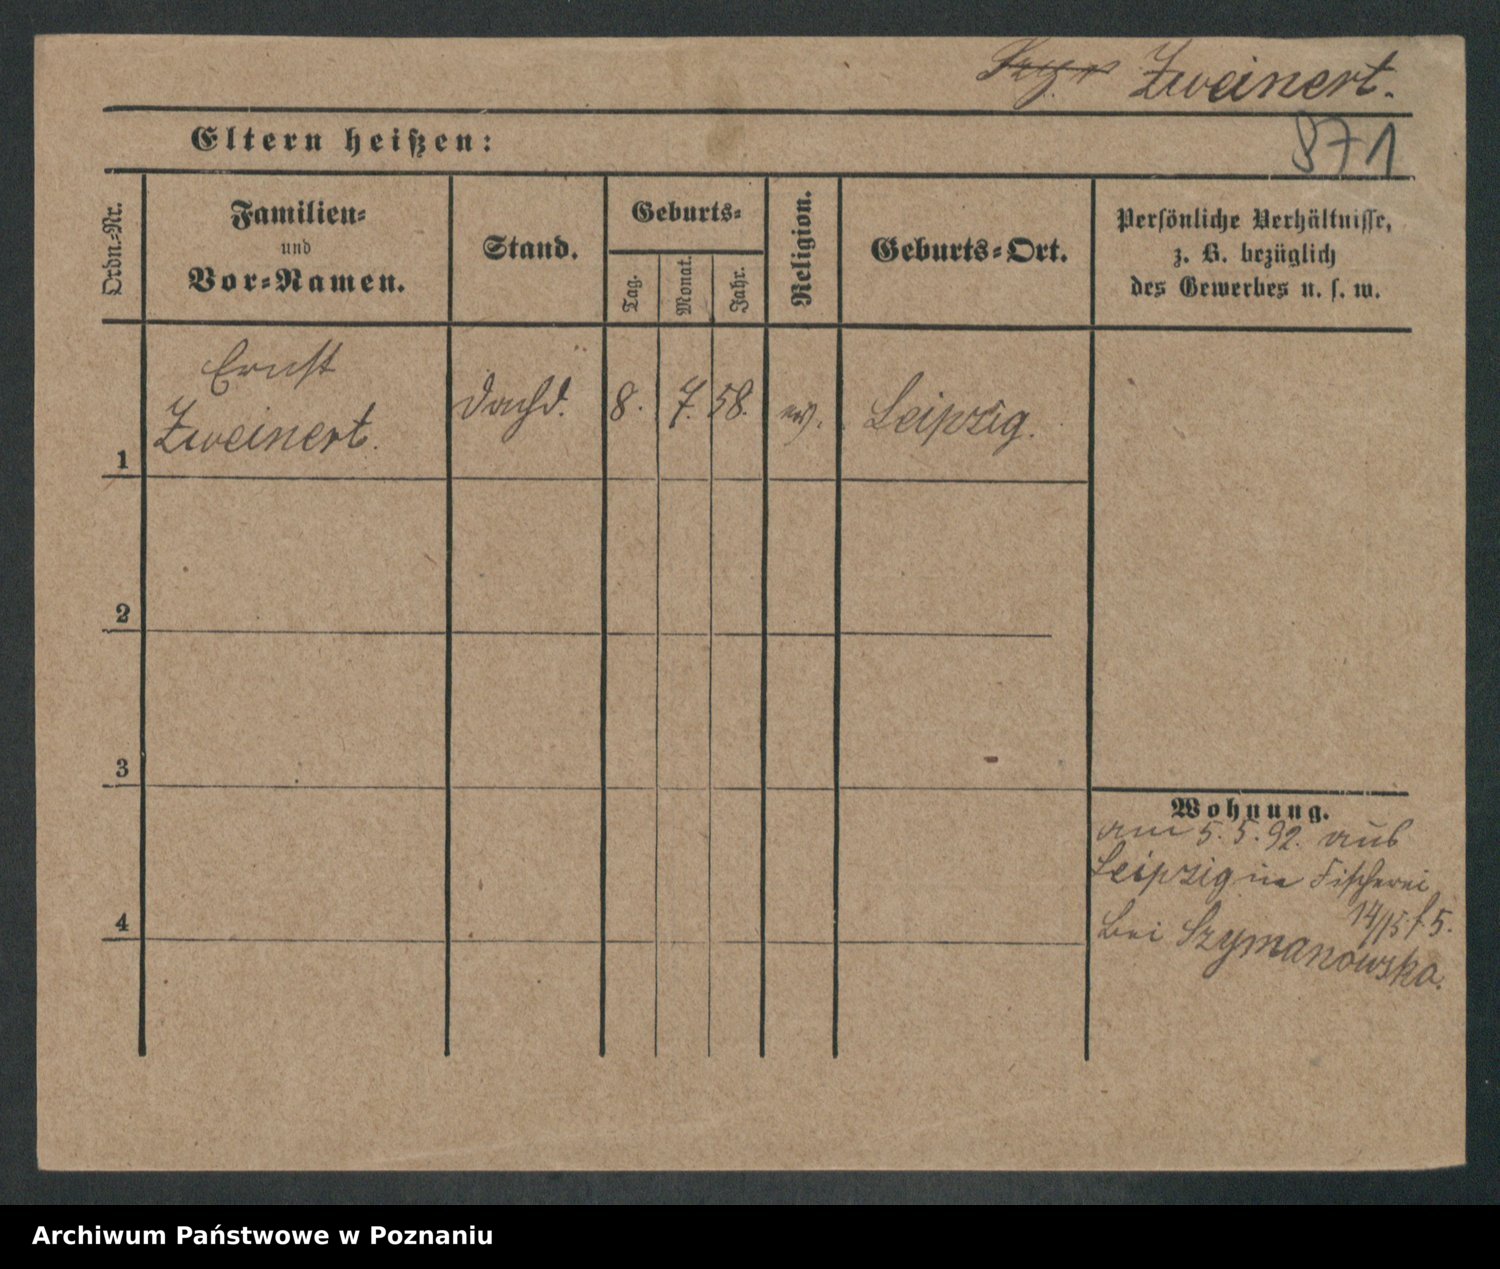 Zweinert.
871
Eltern heißen:
Ordn.-Nr.
Familien-
und
Vor-Namen.
Stand.
Geburts-
Tag.
Monat.
Jahr.
Religion.
Geburts-Ort.
Persönliche Verhältnisse,
z. B. bezüglich
des Gewerbes u. s. w.
Ernst
Zweinert.
Dachd.
8. 7. 58.
ev.
Leipzig.
1
2
3
4
Wohnung.
am 5. 5. 92. aus
Leipzig in Fischerei
14/15
5.
bei Szymanowska.
Archiwum Państwowe w Poznaniu